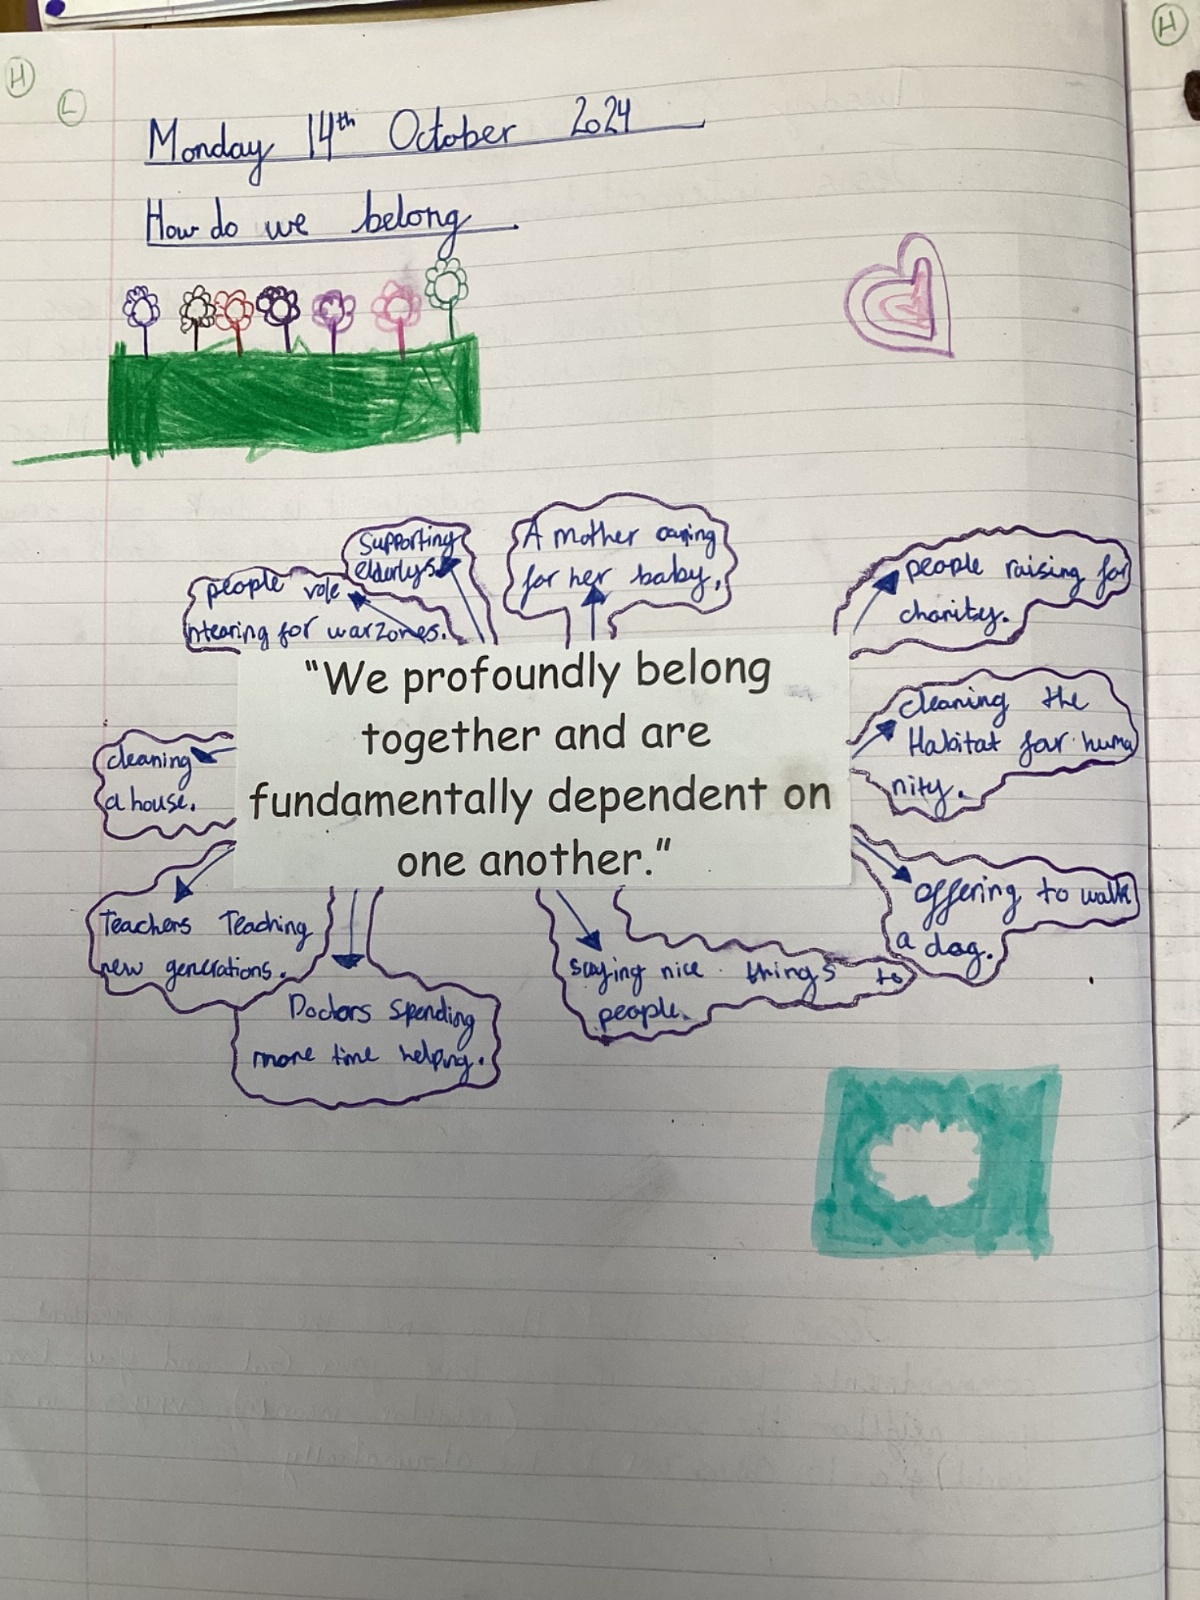 H
L
H
Monday 14th October 2024
How do we belong
Supporting
elderlys.
people vole
ntearing for warzones.
A mother caring
for her baby.
people raising for
charity.
cleaning the
Habitat for huma
nity.
"We profoundly belong
together and are
fundamentally dependent on
one another."
cleaning
a house.
offering to walk
a dog.
Teachers Teaching
new generations.
saying nice things to
people.
Doctors Spending
more time helping.